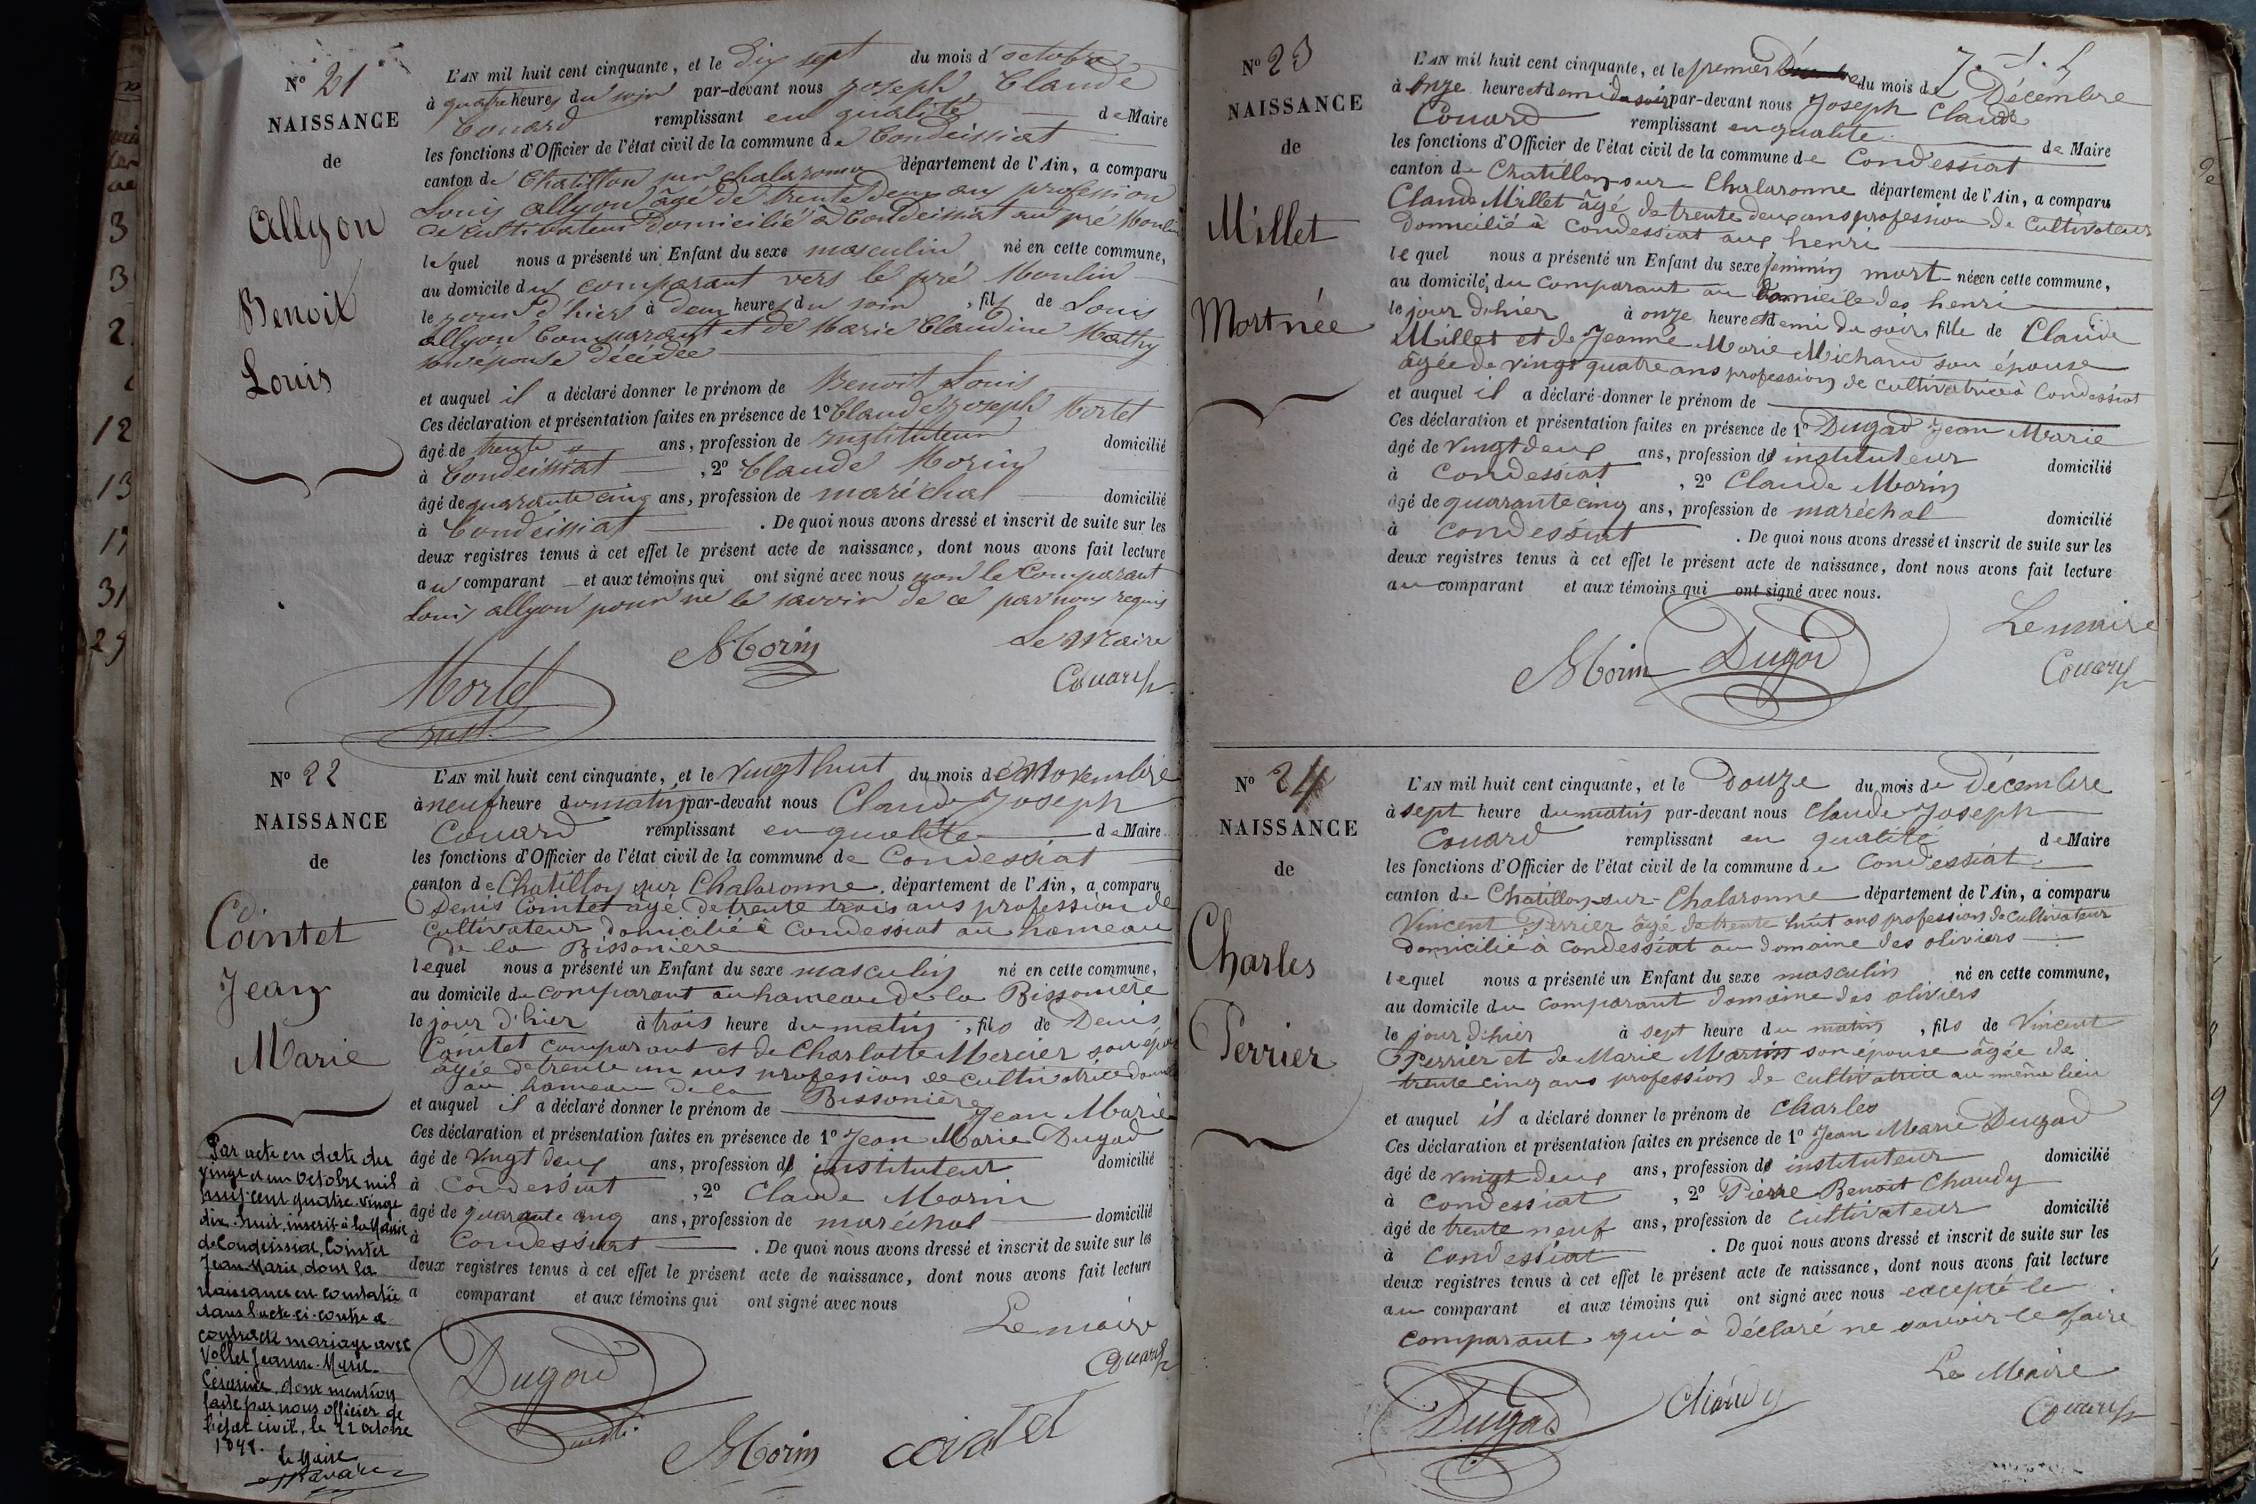 N° 21
NAISSANCE
de
Allyon
Benoit
Louis
L'AN mil huit cent cinquante, et le dix sept du mois d'octobre
à quatre heures du soir par-devant nous Joseph Claude
Couard remplissant en qualité de Maire
les fonctions d'Officier de l'état civil de la commune de Condeissiat
canton de Chatillon sur chalaronne département de l'Ain, a comparu
Louis Allyon âgé de trente deux ans profession
de cultivateur domicilié à Condeissiat au pré Moulin
lequel nous a présenté un Enfant du sexe masculin né en cette commune,
au domicile du comparant vers le pré Moulin
le jour d'hier à deux heures du soir, fils de Louis
Allyon Comparant et de Marie Claudine Mathy
son épouse décédée
et auquel il a déclaré donner le prénom de Benoit Louis
Ces déclaration et présentation faites en présence de 1° Claude Joseph Mortet
âgé de trente ans, profession de instituteur domicilié
à Condeissiat, 2° Claude Morin
âgé de quarante cinq ans, profession de maréchal domicilié
à Condeissiat. De quoi nous avons dressé et inscrit de suite sur les
deux registres tenus à cet effet le présent acte de naissance, dont nous avons fait lecture
au comparant et aux témoins qui ont signé avec nous non le Comparant
Louis allyon pour ne le savoir de ce par nous requis
Morin Le Maire
Mortet Couard
N° 22
NAISSANCE
de
Cointet
Jean
Marie
L'AN mil huit cent cinquante, et le vingt huit du mois de Novembre
à neuf heure du matin par-devant nous Claude Joseph
Couard remplissant en qualité de Maire
les fonctions d'Officier de l'état civil de la commune de Condessiat
canton de Chatillon sur Chalaronne, département de l'Ain, a comparu
Denis Cointet âgé de trente trois ans profession de
cultivateur domicilié à Condessiat au hameau
de la Bissoniere
lequel nous a présenté un Enfant du sexe masculin né en cette commune,
au domicile du comparant au hameau de la Bissoniere
le jour d'hier à trois heure du matin, fils de Denis
Cointet comparant et de Charlotte Mercier son épouse
âgée de trente un ans profession de cultivatrice
au hameau de la Bissoniere
et auquel il a déclaré donner le prénom de Jean Marie
Ces déclaration et présentation faites en présence de 1° Jean Marie Dugad
âgé de vingt deux ans, profession d' instituteur domicilié
à Condessiat, 2° Claude Morin
âgé de quarante cinq ans, profession de maréchal domicilié
à Condessiat. De quoi nous avons dressé et inscrit de suite sur les
deux registres tenus à cet effet le présent acte de naissance, dont nous avons fait lecture
a comparant et aux témoins qui ont signé avec nous
Le maire
Dugad Couard
Morin cointet
Par acte en date du
vingt et un Octobre mil
huit cent quatre-vingt
dix-huit, inscrit à la Mairie
de Condeissiat, Cointet
Jean Marie, dont la
naissance est constatée
dans l'acte ci-contre a
contracté mariage avec
Vollet Jeanne-Marie
Césarine, dont mention
faite par nous officier de
l'état civil, le 22 octobre
1898.
Le Maire
N° 23
NAISSANCE
de
Millet
Mortnée
L'AN mil huit cent cinquante, et le premier du mois de Décembre
à onze heure et demi du soir par-devant nous Joseph Claude
Couard remplissant en qualité de Maire
les fonctions d'Officier de l'état civil de la commune de Condessiat
canton de Chatillon-sur-Chalaronne département de l'Ain, a comparu
Claude Millet âgé de trente deux ans profession de cultivateur
domicilié à Condessiat aux henri
lequel nous a présenté un Enfant du sexe feminin mort née en cette commune,
au domicile, du comparant au domicile des henri
le jour d'hier à onze heure et demi du soir, fille de Claude
Millet et de Jeanne Marie Michaud son épouse
âgée de vingt quatre ans profession de cultivatrice à Condessiat
et auquel il a déclaré donner le prénom de
Ces déclaration et présentation faites en présence de 1° Dugad Jean Marie
âgé de vingt deux ans, profession d' instituteur domicilié
à Condessiat, 2° Claude Morin
âgé de quarante cinq ans, profession de maréchal domicilié
à condessiat. De quoi nous avons dressé et inscrit de suite sur les
deux registres tenus à cet effet le présent acte de naissance, dont nous avons fait lecture
au comparant et aux témoins qui ont signé avec nous.
Le maire
Morin Dugad Couard
N° 24
NAISSANCE
de
Charles
Perrier
L'AN mil huit cent cinquante, et le Douze du mois de Décembre
à sept heure du matin par-devant nous Claude Joseph
Couard remplissant en qualité de Maire
les fonctions d'Officier de l'état civil de la commune de Condessiat
canton de Chatillon-sur-Chalaronne département de l'Ain, a comparu
Vincent Perrier âgé de trente huit ans profession de cultivateur
domicilié à Condessiat au domaine des oliviers
lequel nous a présenté un Enfant du sexe masculin né en cette commune,
au domicile du comparant domaine des oliviers
le jour d'hier à sept heure du matin, fils de Vincent
Perrier et de Marie Martin son épouse âgée de
trente cinq ans profession de cultivatrice au même lieu
et auquel il a déclaré donner le prénom de Charles
Ces déclaration et présentation faites en présence de 1° Jean Marie Dugad
âgé de vingt deux ans, profession d' instituteur domicilié
à Condessiat, 2° Pierre Benoit Chaudy
âgé de trente neuf ans, profession de cultivateur domicilié
à Condessiat. De quoi nous avons dressé et inscrit de suite sur les
deux registres tenus à cet effet le présent acte de naissance, dont nous avons fait lecture
au comparant et aux témoins qui ont signé avec nous excepté le
comparant qui à déclaré ne savoir le faire
Le Maire
Dugad Chaudy Couard